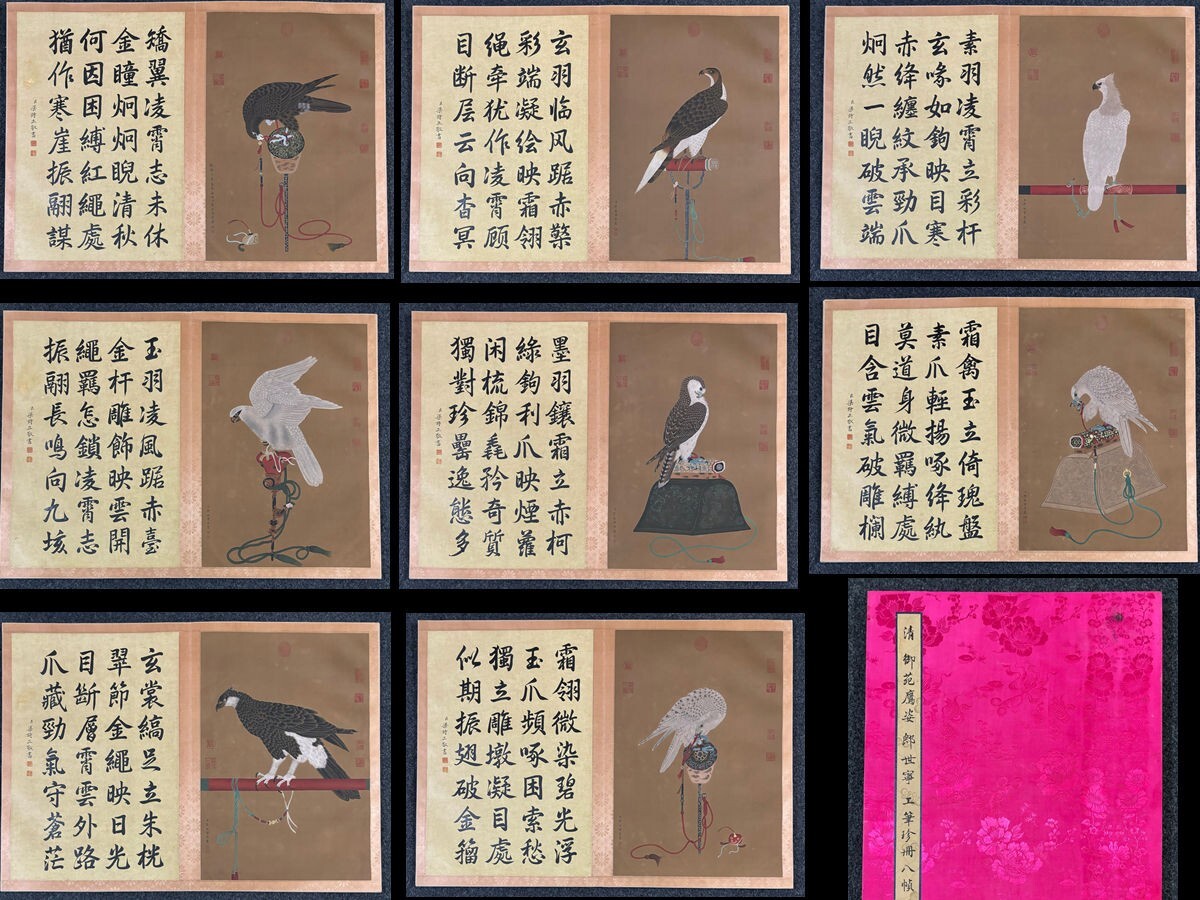 矯翼凌霄志未休
金瞳炯炯睨清秋
何因困縛紅繩處
猶作寒崖振翮謀
玄羽临风踞赤檠
彩端凝绘映霜翎
绳牵犹作凌霄顾
目断层云向杳冥
素羽凌霄立彩杆
玄喙如鉤映目寒
赤絳纏紋承勁爪
炯然一睨破雲端
玉羽凌風踞赤臺
金杆雕飾映雲開
繩羈怎鎖凌霄志
振翮長鳴向九垓
墨羽鑲霜立赤柯
綠鉤利爪映煙蘿
闲梳錦毳矜奇質
獨對珍罍逸態多
霜禽玉立倚瑰盤
素爪輕揚啄絳紈
莫道身微羈縛處
目含雲氣破雕欄
玄裳縞足立朱桄
翠節金繩映日光
目斷層霄雲外路
爪藏勁氣守蒼茫
霜翎微染碧光浮
玉爪頻啄困索愁
獨立雕墩凝目處
似期振翅破金籀
清 御苑鷹姿 郎世寧 工筆珍冊八幀